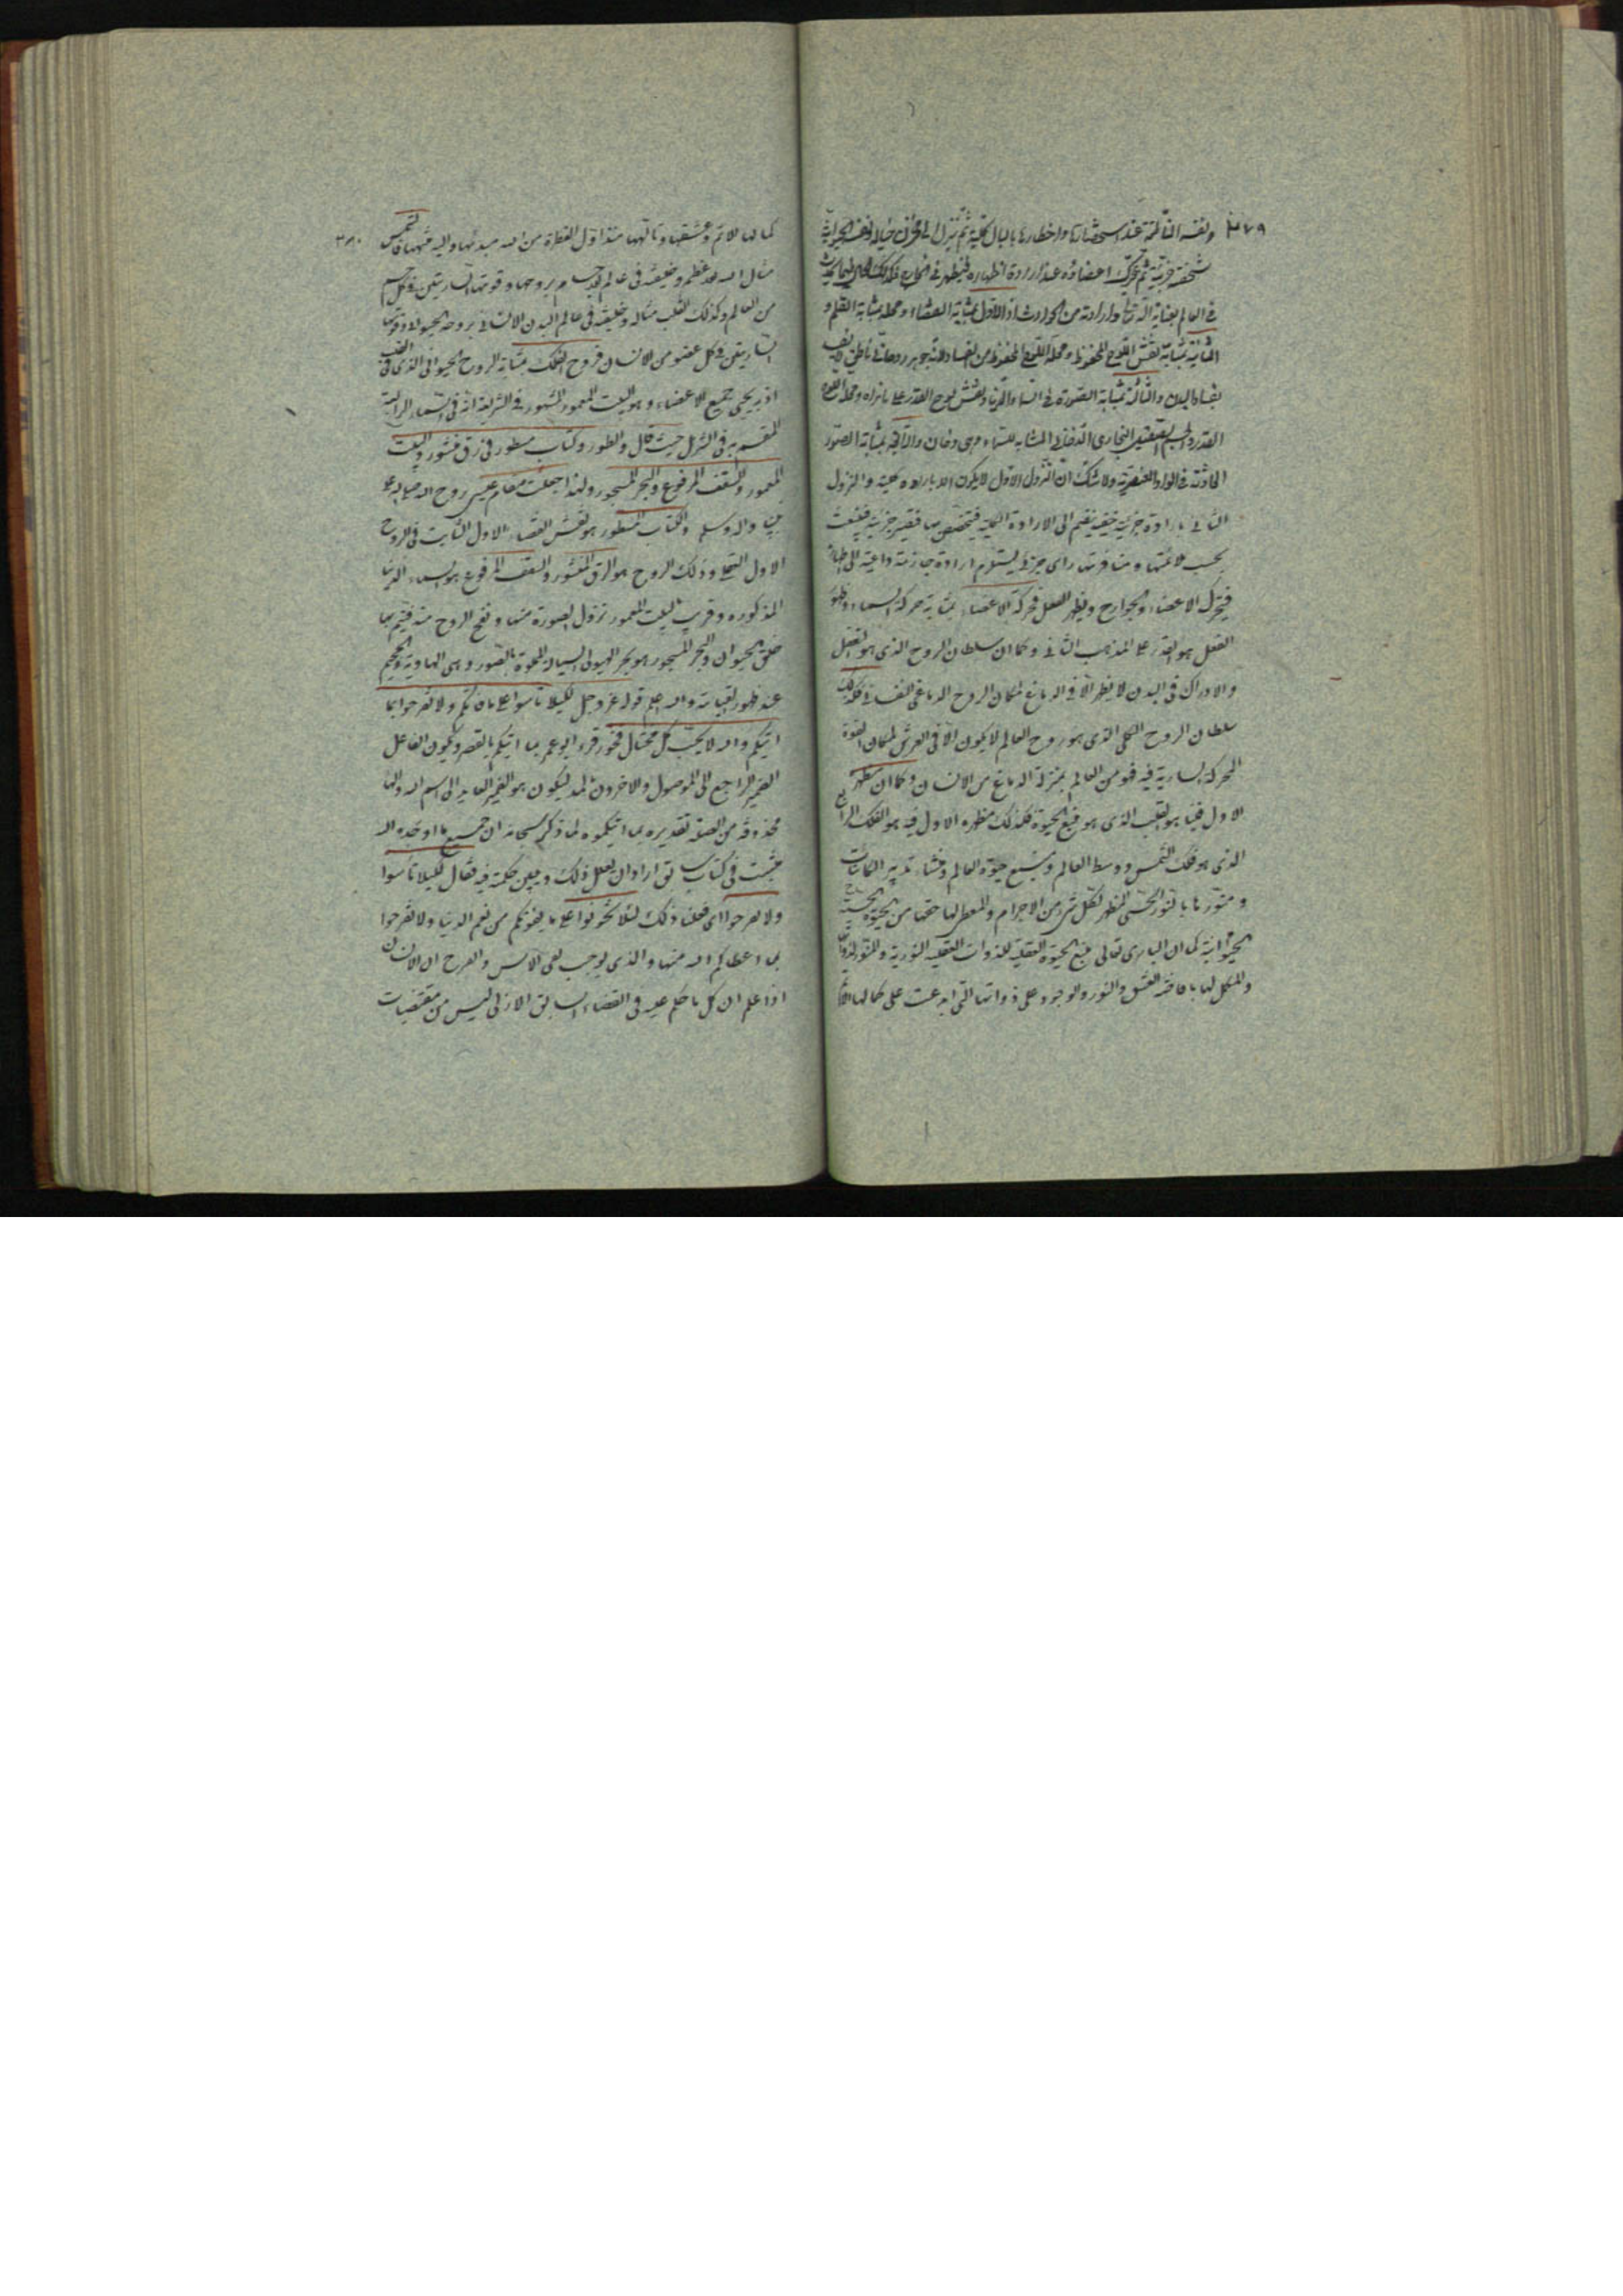 ٣٧٩
ونفسه الناطقة عند استحضارها واخطارها بالبال كلية ثم تنزل الى مخزن خياله
شخصية جزئية ثم يتحرك اعضاؤه عند ارادة اظهاره فيظهر في الخارج فكذلك
في العالم بعناية الله تعالى وارادته من الحوادث اذ الاول بمثابة القضاء ومحله بمثابة القلم و
الثانية بمثابة نقش اللوح المحفوظ ومحله اللوح المحفوظ من الفساد لانه جوهر روحاني
بفساد البدن والثالثة بمثابة الصورة في السماء الدنيا ونقش لوح القدر على بابراه ومحله لوح
القدر والجسم البخارى الدخانى المشابه للسماء وهى دخان والرابع بمثابة الصور
الحادثة في المواد العنصرية ولا شك ان النزول الاول لا يكون الا بارادة كلية والنزول
الثانى بارادة جزئية تنضم الى الارادة الكلية فيتخصص بها فتصير جزئية فينبعث
بحسب ملائمتها ومنافرتها راى جزئى يستلزم ارادة جازمة داعية الى اظهاره
فيتحرك الاعضاء والجوارح ويظهر الفعل فحركة الاعضاء بمثابة حركة السماء وظهور
الفعل هو القدر على المذهب الثانى وكما ان سلطان الروح الذى هو العقل
والادراك في البدن لا يظهر الا في الدماغ لمكان الروح الدماغى النفسانى فكذلك
سلطان الروح الكلى الذى هو روح العالم لا يكون الا في العرش لمكان القوة
المحركة السارية فيه فهو من العالم بمنزلة الدماغ من الانسان وكما ان مظهره
الاول فينا هو القلب الذى هو منبع الحيوة فكذلك مظهره الاول فيه هو الفلك الرابع
الذى هو فلك الشمس ووسط العالم ومنبع حيوة العالم ومنشاء تدبير الكائنات
ومنورها بالنور الحسى المظهر لكل شىء من الاجرام والمعطى لها حقها من الحيوة الحسية
الحيوانية كما ان البارى تعالى منبع الحيوة العقلية للذوات العقلية النورية والمنور لذواتها
والمكمل لها بافاضة العشق والنور والوجود على ذواتها التى ابدعت على كمالها الاتم
٣٨٠
كمالها الاتم وعشقها وتالهها منذ اول الفطرة من الله مبدئها واليه منتهاها فالشمس
مثال الله الاعظم وخليفته في عالم الاجسام بروحها وقوتها الساريتين في كل جسم
من العالم وكذلك القلب مثاله وخليفته في عالم البدن الانسانى بروحه الحيوانى وقوتها
الساريتين في كل عضو من الانسان فروح الفلك بمثابة الروح الحيوانى الذى في القلب
اذ به يحيى جميع الاعضاء وهو البيت المعمور المشهور في الشريعة انه في السماء الرابعة
المقسم به في التنزيل حيث قال والطور وكتاب مسطور في رق منشور والبيت
المعمور والسقف المرفوع والبحر المسجور ولهذا جعلت مقام عيسى روح الله صلى الله على
نبينا واله وسلم والكتاب المسطور هو نقش القضاء الاول الثابت في الروح
الاول وذلك الروح هو الرق المنشور والسقف المرفوع هو السماء الدنيا
المذكورة وقريب البيت المعمور نزول الصورة منها ونفخ الروح منه فيتم بها
خلق الحيوان والبحر المسجور هو بحر الهيولى السيالة المملوة بالصور وهى الهاوية والجحيم
عند ظهور القيامة والله اعلم قوله عز وجل لكيلا تاسوا على ما فاتكم ولا تفرحوا بما
اتيكم والله لا يحب كل مختال فخور قرء ابو عمرو بما اتيكم بالقصر ويكون الفاعل
الضمير الراجع الى الموصول والاخرون بالمد ليكون هو الضمير العايد الى اسم الله والهاء
محذوفة من الصلة تقديره بما اتيكموه لما ذكر سبحانه ان جميع ما اوجده الله
مثبت في كتاب سابق اراد ان يعلل ذلك ويبين حكمته فيه فقال لكيلا تاسوا
ولا تفرحوا اى فعلنا ذلك لئلا تحزنوا على ما يفوتكم من نعم الدنيا ولا تفرحوا
بما اعطاكم الله منها والذى يوجب نفى الاسى والفرح ان الانسان
اذا علم ان كل ما حكم عليه في القضاء السابق الازلى ليس من مقتضيات